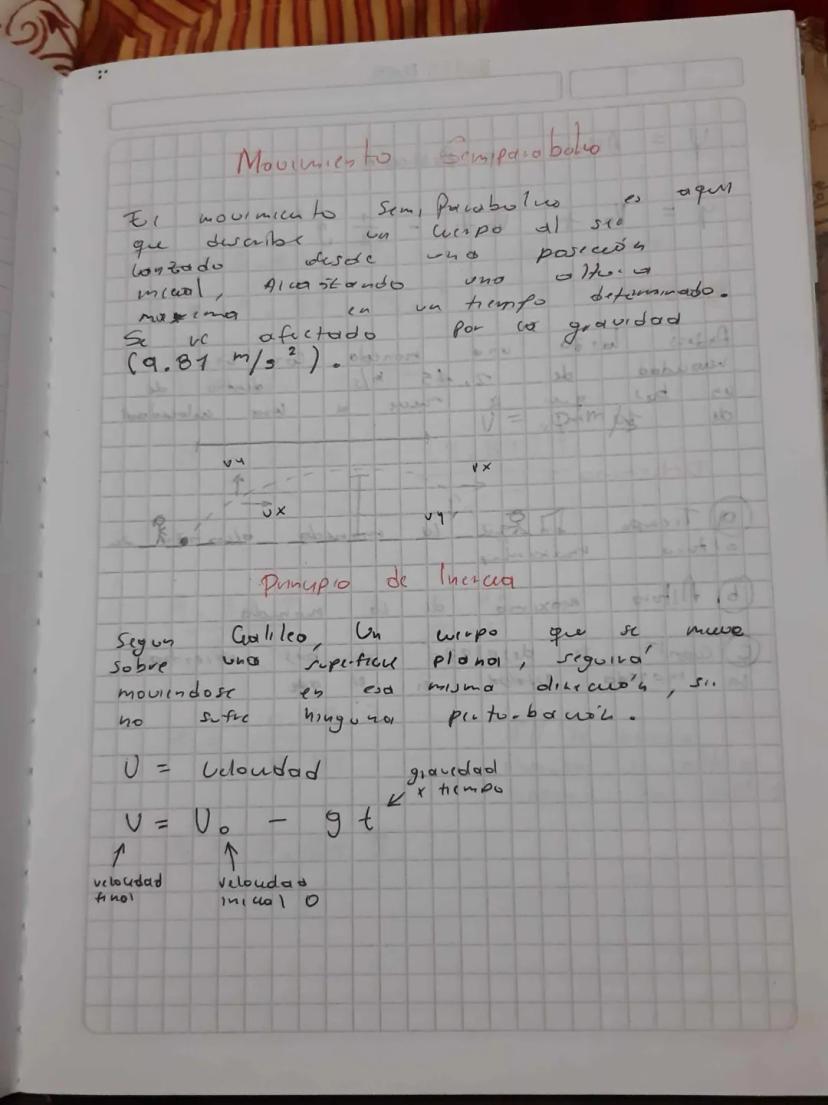 Movimiento Semiparabolico
El movimiento Semiparabolico es aquel
que describe un cuerpo al ser
lanzado desde una posición
inicial, Alcanzando una altura
maxima en un tiempo determinado.
Se ve afectado por la gravidad
(9.81 m/s²).
vy
vx
vx
vy
Principio de Inercia
Segun Galileo, Un cuerpo que se mueve
sobre una superficie plana, seguirá
moviendose en esa misma dirección, si
no sufre ninguna perturbación.
V = velocidad
gravedad
x tiempo
V = V₀ - g t
velocidad
final
velocidad
inicial 0